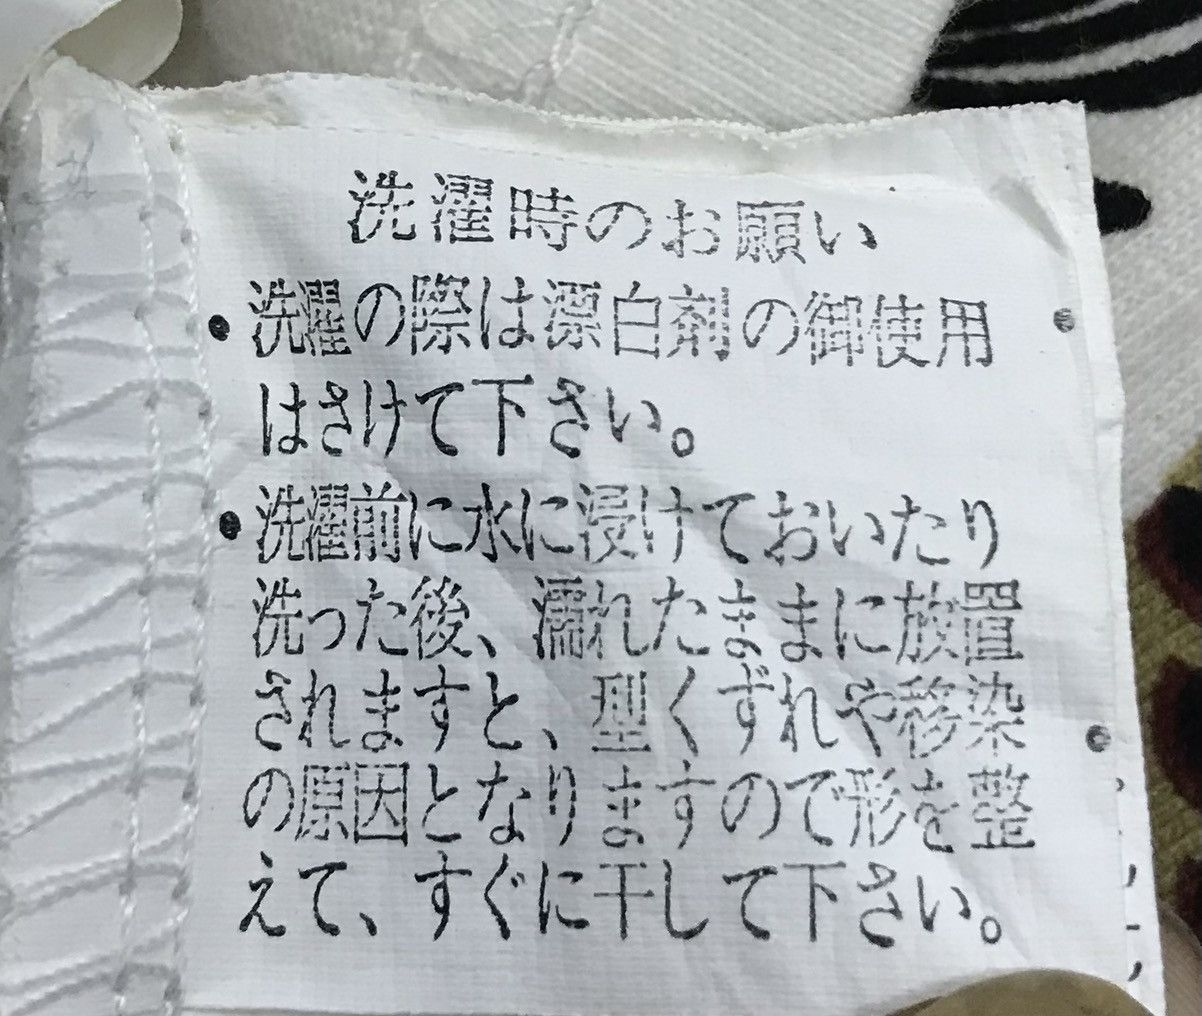 洗濯時のお願い
•洗濯の際は漂白剤の御使用
はさけて下さい。
•洗濯前に水に浸けておいたり
洗った後、濡れたままに放置
されますと、型くずれや移染
の原因となりますので形を整
えて、すぐに干して下さい。